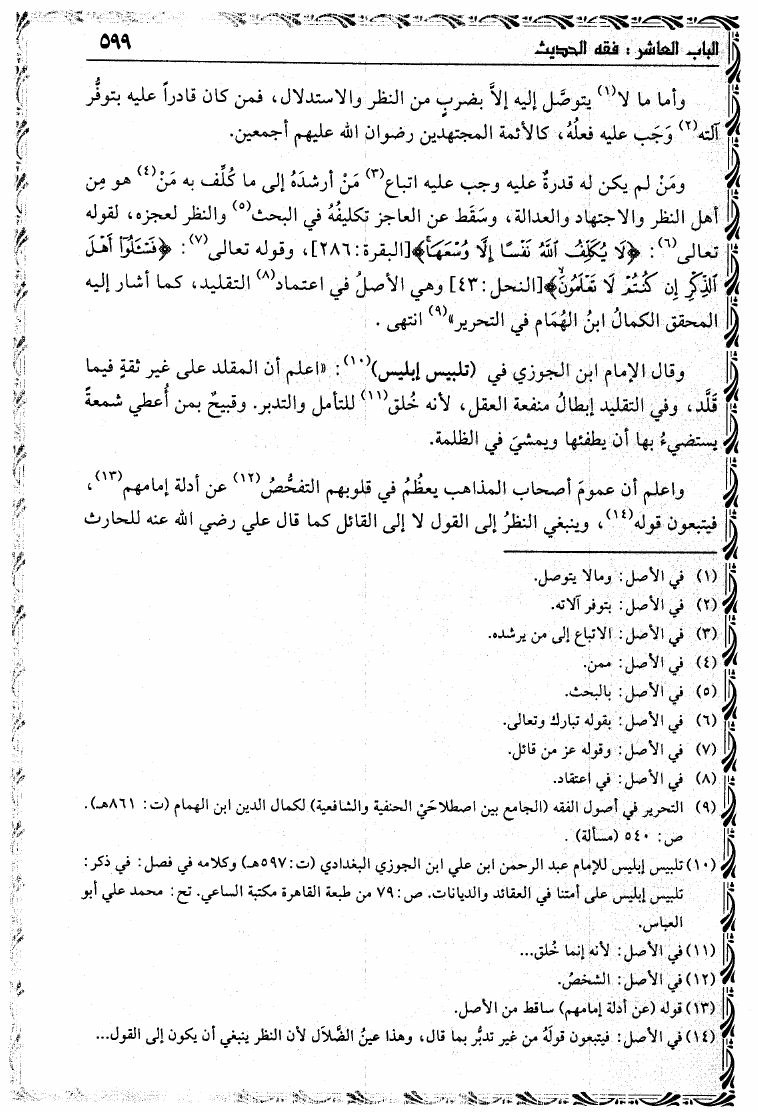 الباب العاشر : فقه الحديث ٥٩٩
وأما ما لا(١) يتوصَّل إليه إلاَّ بضربٍ من النظر والاستدلال، فمن كان قادراً عليه بتوفُّر
آلته(٢) وَجَب عليه فعلُهُ، كالأئمة المجتهدين رضوان الله عليهم أجمعين.
ومَنْ لم يكن له قدرةٌ عليه وجب عليه اتباع(٣) مَنْ أرشدَهُ إلى ما كُلِّف به مَنْ(٤) هو مِن
أهل النظر والاجتهاد والعدالة، وسَقَط عن العاجز تكليفُهُ في البحث(٥) والنظر لعجزه، لقوله
تعالى(٦): ﴿لَا يُكَلِّفُ ٱللَّهُ نَفْسًا إِلَّا وُسْعَهَاۚ﴾[البقرة:٢٨٦]، وقوله تعالى(٧): ﴿فَسْـَٔلُوٓا۟ أَهْلَ
ٱلذِّكْرِ إِن كُنتُمْ لَا تَعْلَمُونَۙ﴾[النحل:٤٣] وهي الأصلُ في اعتماد(٨) التقليد، كما أشار إليه
المحقق الكمالُ ابنُ الهُمَام في التحرير»(٩) انتهى .
وقال الإمام ابن الجوزي في (تلبيس إبليس)(١٠): «اعلم أن المقلد على غير ثقةٍ فيما
قَلَّد، وفي التقليد إبطالُ منفعة العقل، لأنه خُلق(١١) للتأمل والتدبر. وقبيحٌ بمن أُعطي شمعةً
يستضيءُ بها أن يطفئها ويمشيَ في الظلمة.
واعلم أن عمومَ أصحاب المذاهب يعظُمُ في قلوبهم التفحُّصُ(١٢) عن أدلة إمامهم(١٣)،
فيتبعون قوله(١٤)، وينبغي النظرُ إلى القول لا إلى القائل كما قال علي رضي الله عنه للحارث
(١) في الأصل: ومالا يتوصل.
(٢) في الأصل: بتوفر آلاته.
(٣) في الأصل: الاتباع إلى من يرشده.
(٤) في الأصل: ممن.
(٥) في الأصل: بالبحث.
(٦) في الأصل: بقوله تبارك وتعالى.
(٧) في الأصل: وقوله عز من قائل.
(٨) في الأصل: في اعتقاد.
(٩) التحرير في أصول الفقه (الجامع بين اصطلاحَيْ الحنفية والشافعية) لكمال الدين ابن الهمام (ت: ٨٦١هـ).
ص: ٥٤٠ (مسألة) .
(١٠) تلبيس إبليس للإمام عبد الرحمن ابن علي ابن الجوزي البغدادي (ت:٥٩٧هـ) وكلامه في فصل: في ذكر:
تلبيس إبليس على أمتنا في العقائد والديانات. ص:٧٩ من طبعة القاهرة مكتبة الساعي. تح: محمد علي أبو
العباس.
(١١) في الأصل: لأنه إنما خُلق...
(١٢) في الأصل: الشخصُ.
(١٣) قوله (عن أدلة إمامهم) ساقط من الأصل.
(١٤) في الأصل: فيتبعون قولَهُ من غير تدبُّر بما قال، وهذا عينُ الضَّلاَل لأن النظر ينبغي أن يكون إلى القول...